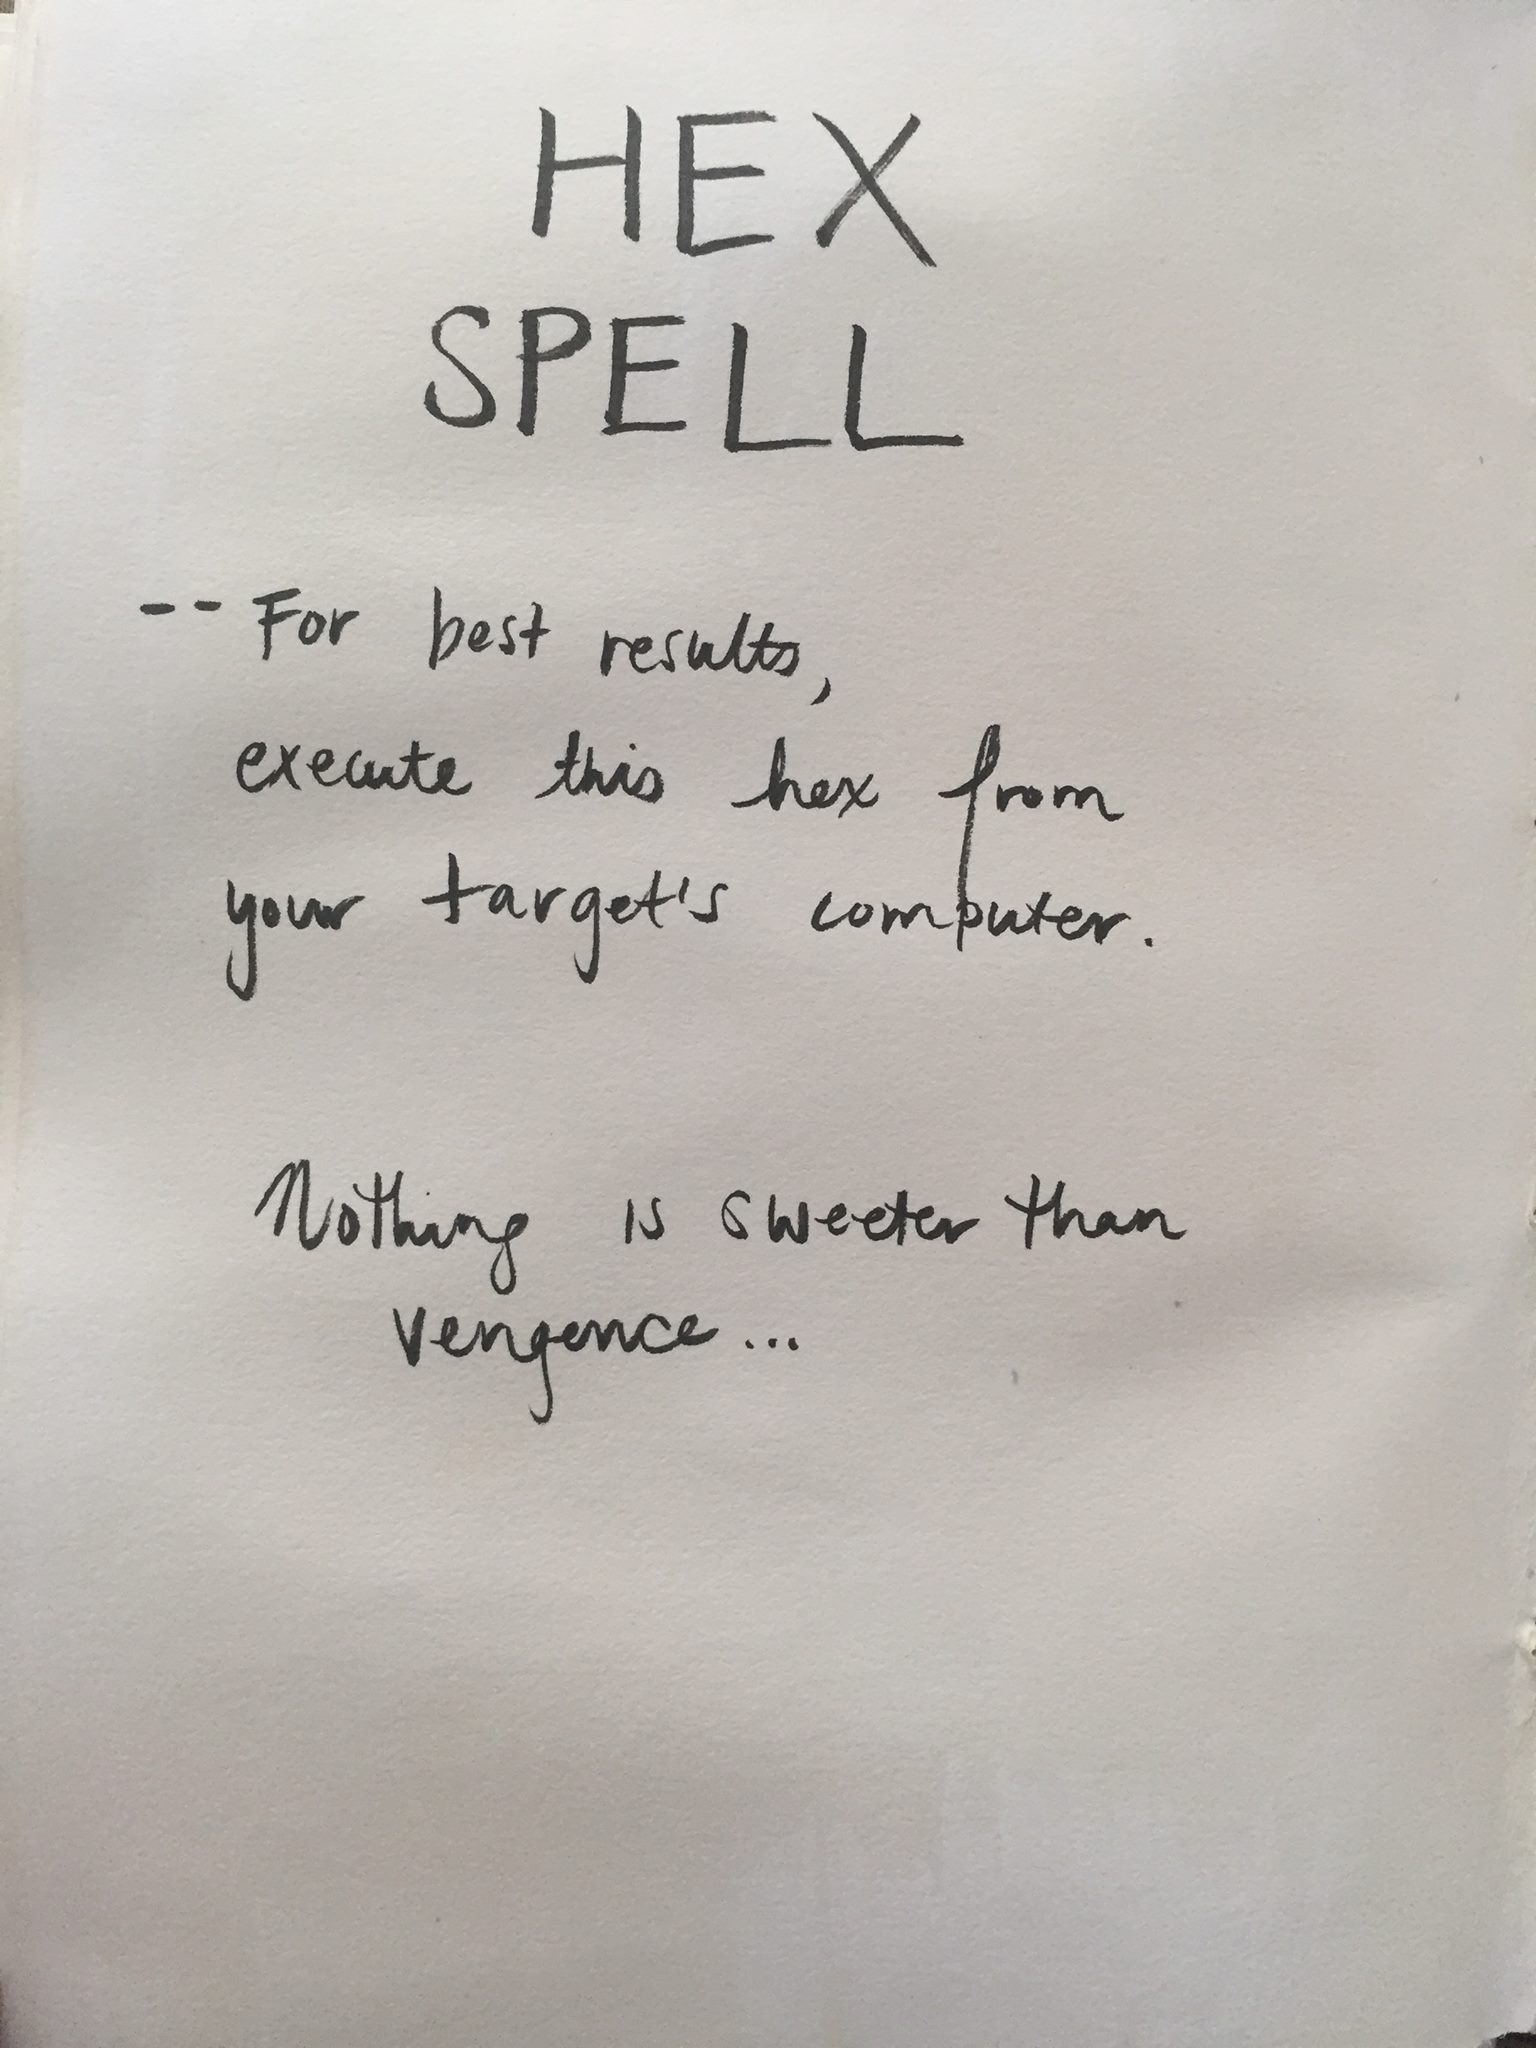 HEX
SPELL
-- For best results,
execute this hex from
your target's computer.
Nothing is sweeter than
vengence...